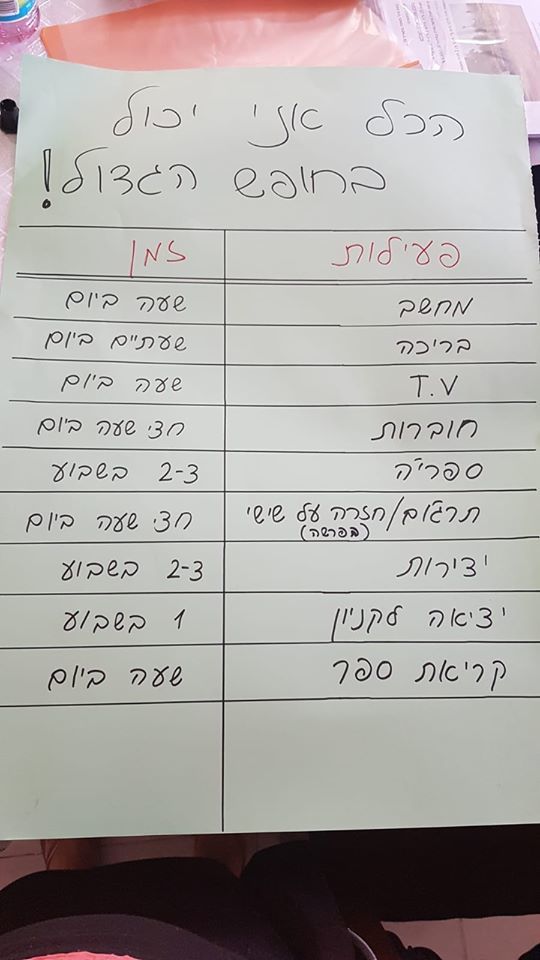 הכל אני יכול
בחופש הגדול!
פעילות זמן
מחשב שעה ביום
בריכה שעתיים ביום
T.V שעה ביום
חוברות חצי שעה ביום
ספריה 2-3 בשבוע
תרגום/חזרה על שישי חצי שעה ביום
(בפרשה)
יצירות 2-3 בשבוע
יציאה לקניון 1 בשבוע
קריאת ספר שעה ביום